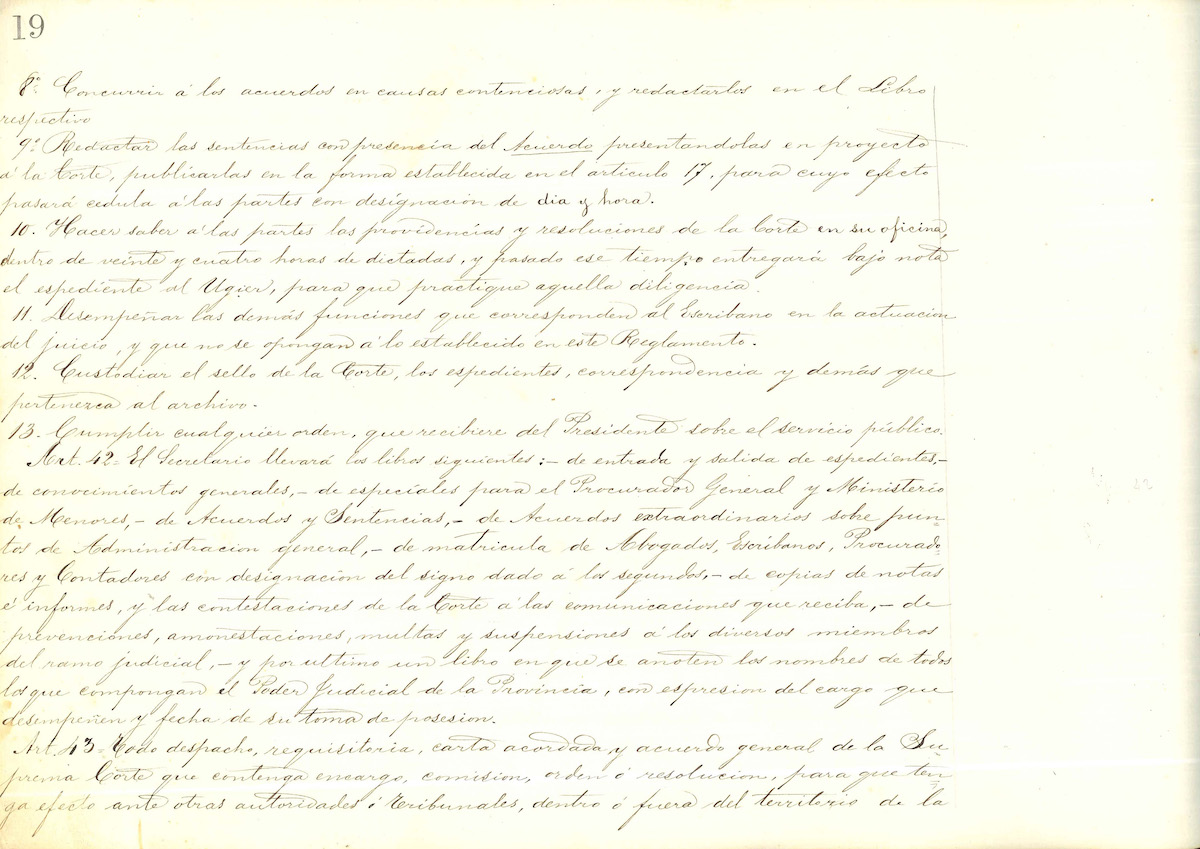 19
8º Concurrir á los acuerdos en causas contenciosas, y redactarlos en el Libro
respectivo
9º Redactar las sentencias con presencia del Acuerdo presentandolas en proyecto
á la Corte, publicarlas en la forma establecida en el articulo 17, para cuyo efecto
pasará cedula á las partes con designacion de dia y hora.
10. Hacer saber á las partes las providencias y resoluciones de la Corte en su oficina,
dentro de veinte y cuatro horas de dictadas, y pasado ese tiempo entregará bajo nota
el espediente al Ugier, para que practique aquella diligencia.
11. Desempeñar las demás funciones que corresponden al Escribano en la actuacion
del juicio, y que no se opongan á lo establecido en este Reglamento.
12. Custodiar el sello de la Corte, los espedientes, correspondencia y demás que
pertenezca al archivo.
13. Cumplir cualquier orden, que recibiere del Presidente sobre el servicio público.
Art. 42= El Secretario llevará los libros siguientes:- de entrada y salida de espedientes,-
de conocimientos generales,- de especiales para el Procurador General y Ministerio
de Menores,- de Acuerdos y Sentencias,- de Acuerdos extraordinarios sobre pun=
tos de Administracion general,- de matricula de Abogados, Escribanos, Procurado=
res y Contadores con designacion del signo dado á los segundos,- de copias de notas
é informes, y las contestaciones de la Corte á las comunicaciones que reciba,- de
prevenciones, amonestaciones, multas y suspensiones á los diversos miembros
del ramo judicial,- y por ultimo un libro en que se anoten los nombres de todos
los que compongan el Poder Judicial de la Provincia, con espresion del cargo que
desempeñen y fecha de su toma de posesion.
Art. 43= Todo despacho, requisitoria, carta acordada y acuerdo general de la Su=
prema Corte que contenga encargo, comision, orden ó resolucion, para que ten=
ga efecto ante otras autoridades ó tribunales, dentro ó fuera del territorio de la